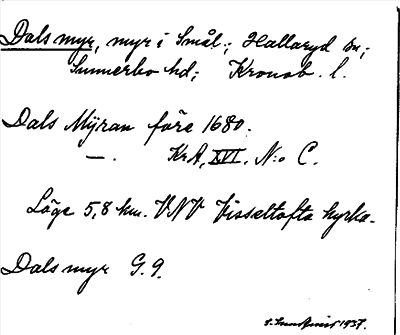 Dals myr, myr i Smål.; Hallaryd sn;
Sunnerbo hd; Kronob. l.
Dals Mÿran före 1680.
—. KrA, XVI, N:o C.
Läge 5,8 km. VNV Visseltofta kyrka.
Dals myr G. 9.
1937.